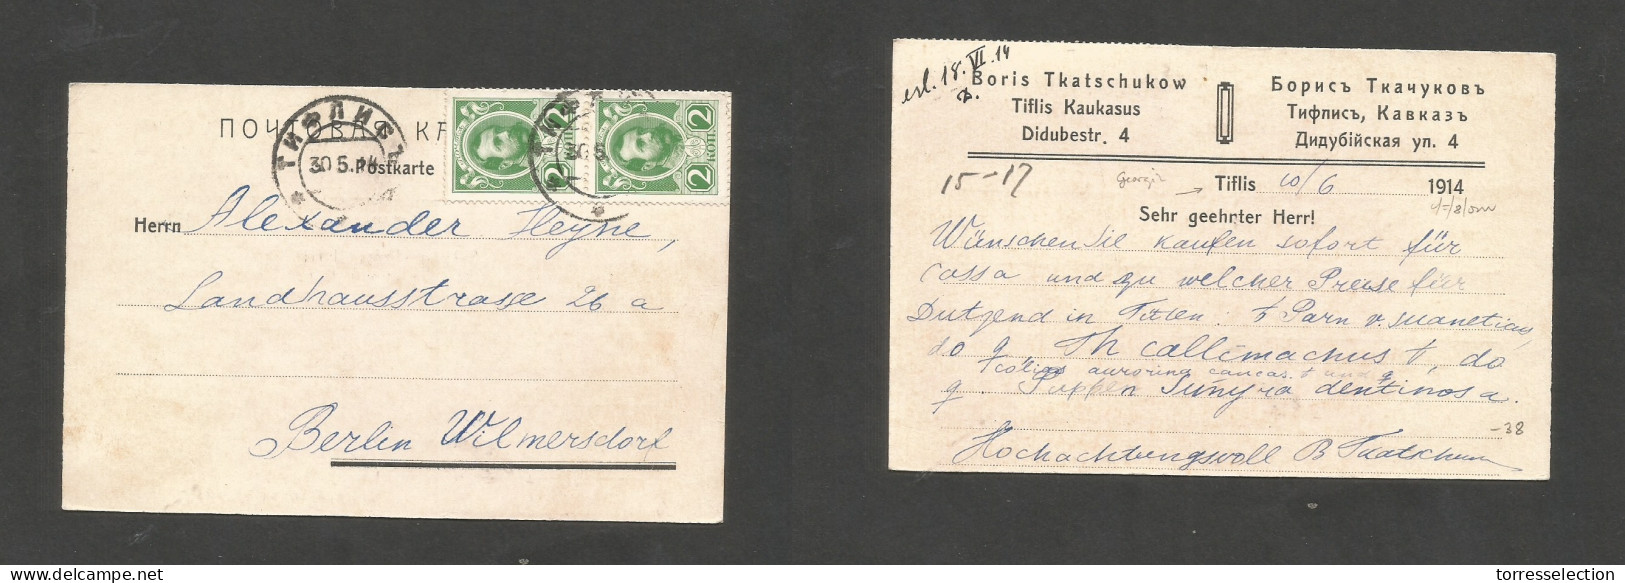 ПОЧТОВАЯ КА
Postkarte
ТИФЛИСЪ
30.5.14
2
2
КОП
Herrn Alexander Heyne,
Landhausstrasse 26 a
Berlin Wilmersdorf
erl. 18. VI. 14
Boris Tkatschukow
Tiflis Kaukasus
Didubestr. 4
Борисъ Ткачуковъ
Тифлисъ, Кавказъ
Дидубійская ул. 4
15-17
Georgia
Tiflis 10/6 1914
Sehr geehrter Herr!
Wünschen Sie kaufen sofort für
cassa und zu welcher Preise für
Dutzend in Tüten
do Th callimachus do
Colias aurorina caucas. und
Puppen dentinosa.
-38
Hochachtungsvoll B Tkatschukow
torresselection